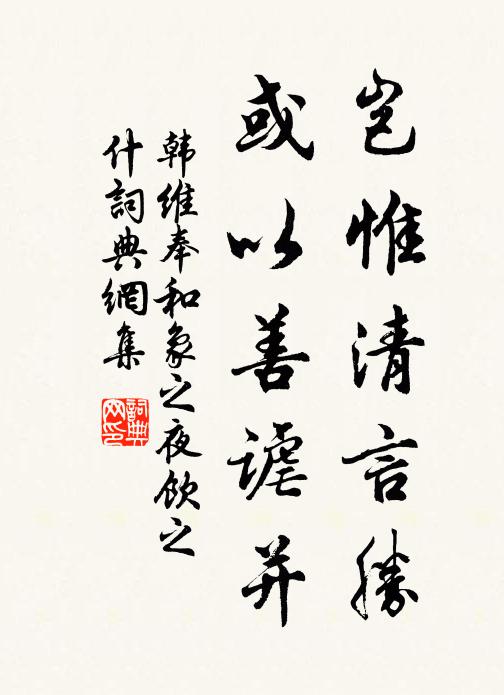 岂惟清言勝
或以善謔并
韩维奉和象之夜飲之
什詞典網集
詞典
网印